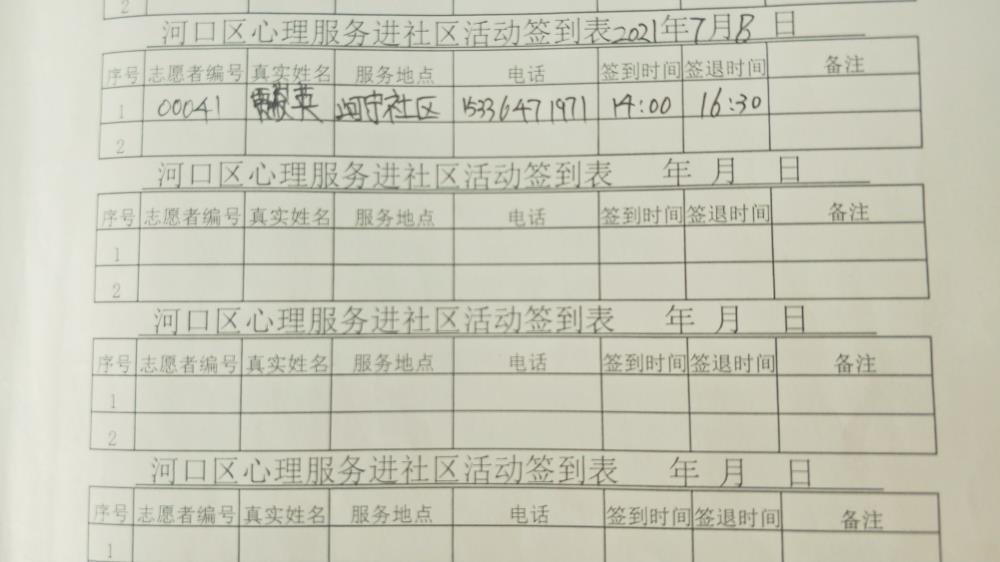 2
河口区心理服务进社区活动签到表2021年7月8日
序号 志愿者编号 真实姓名 服务地点 电话 签到时间 签退时间 备注
1 00041 英 河宁社区 15336471971 14:00 16:30
2
河口区心理服务进社区活动签到表 年 月 日
序号 志愿者编号 真实姓名 服务地点 电话 签到时间 签退时间 备注
1
2
河口区心理服务进社区活动签到表 年 月 日
序号 志愿者编号 真实姓名 服务地点 电话 签到时间 签退时间 备注
1
2
河口区心理服务进社区活动签到表 年 月 日
序号 志愿者编号 真实姓名 服务地点 电话 签到时间 签退时间 备注
1